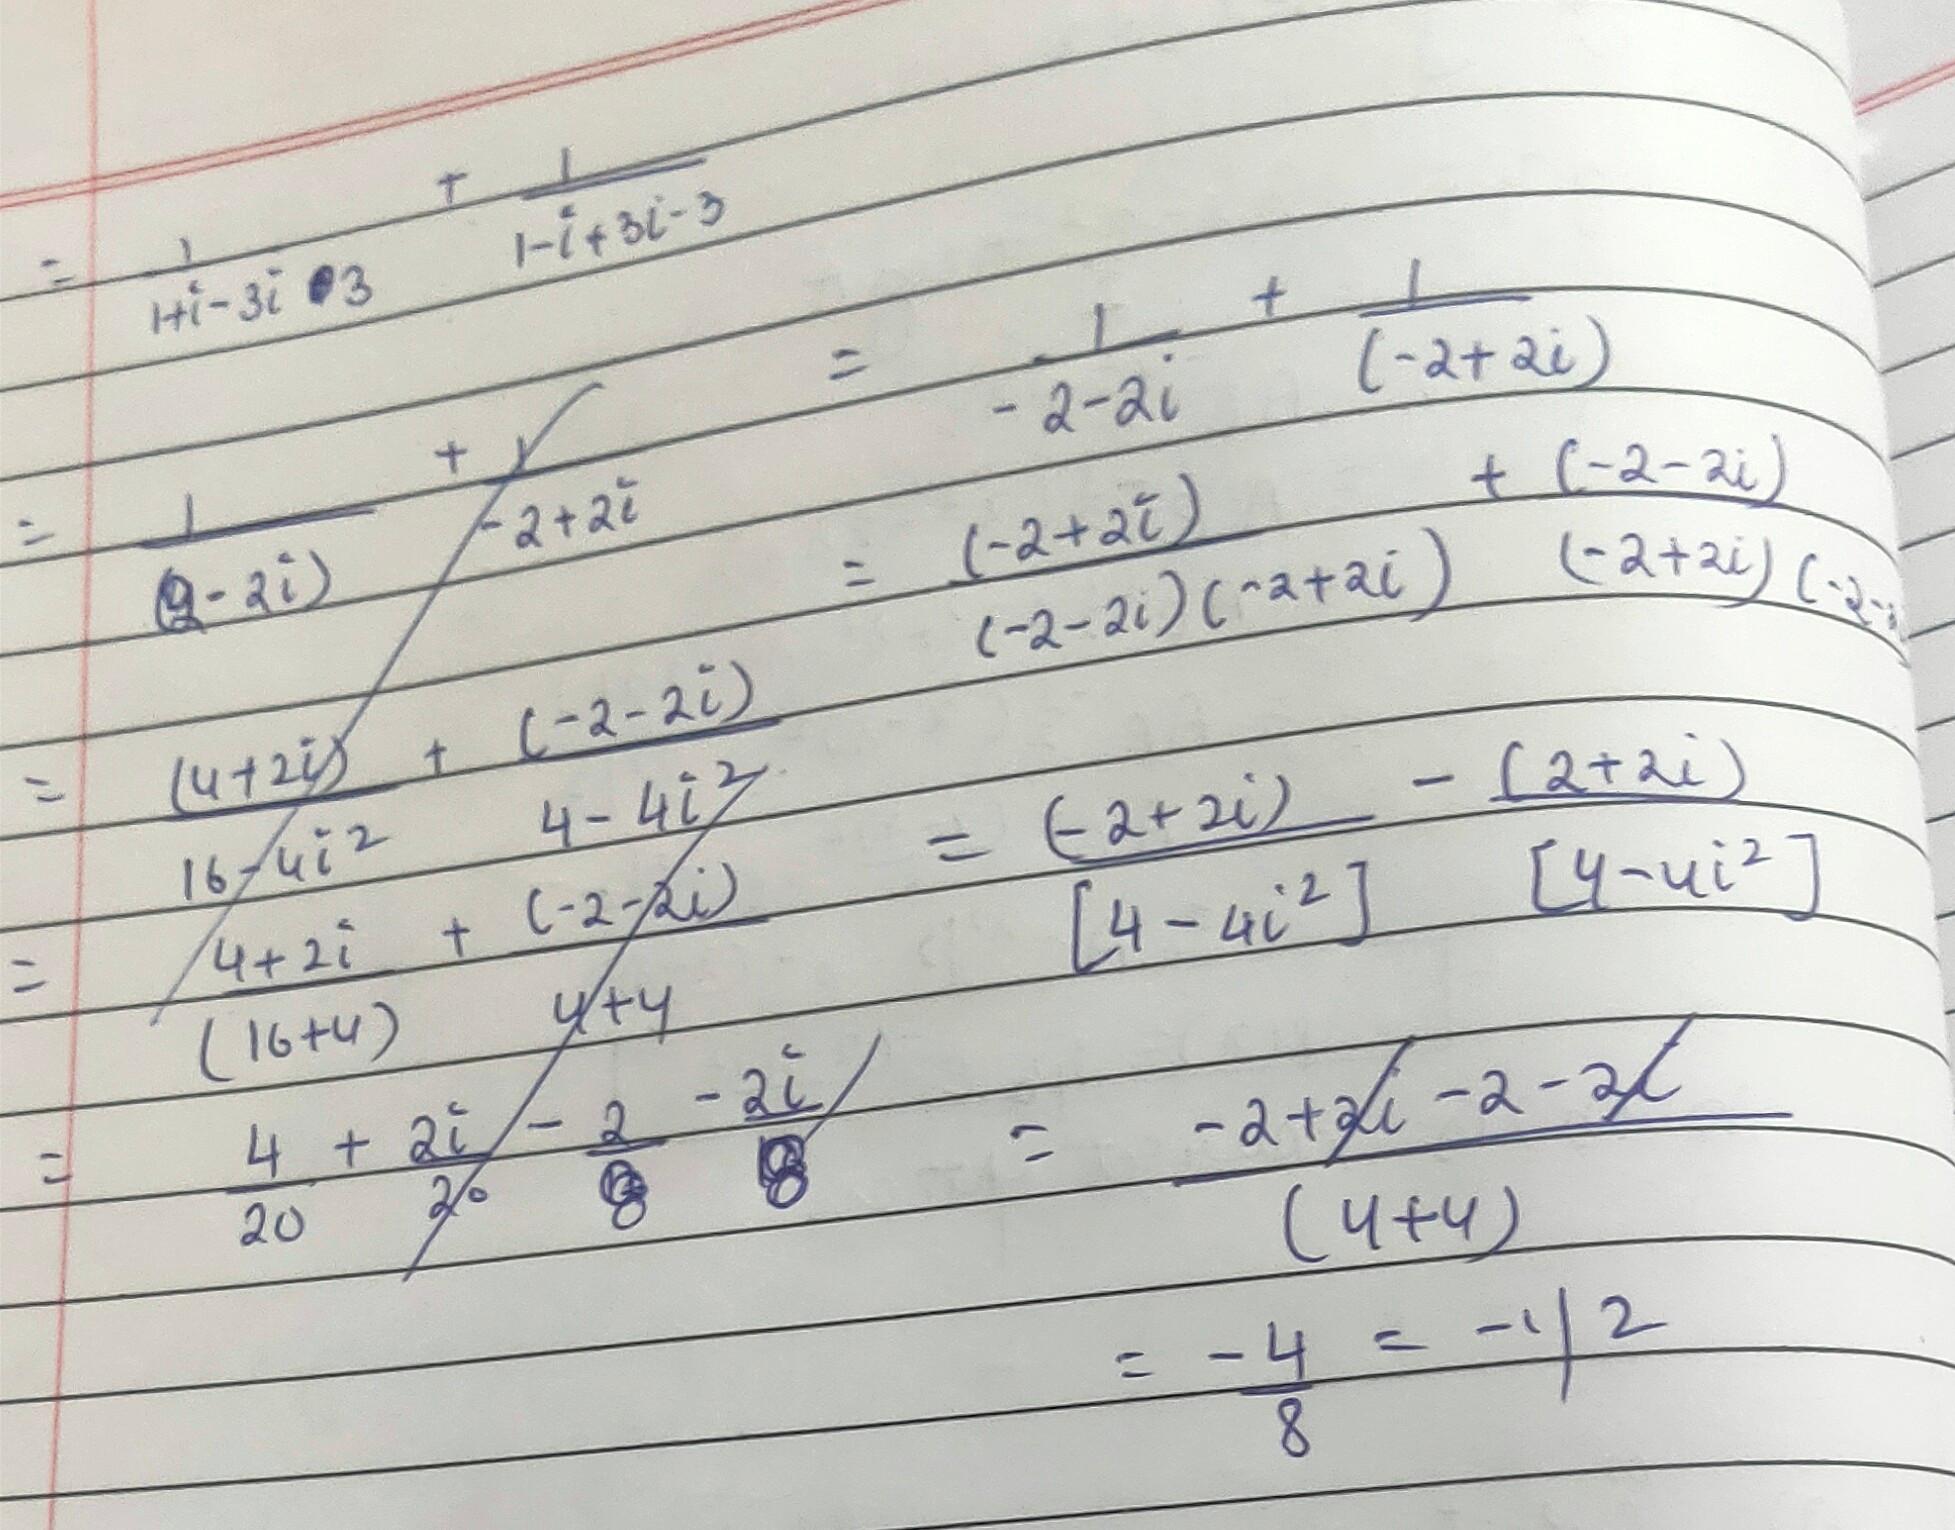 = 1/(1+i-3i-3) + 1/(1-i+3i-3)
= 1/(2-2i) + 1/(-2+2i)
= (4+2i)/(16-4i²) + (-2-2i)/(4-4i²)
= (4+2i)/(16+4) + (-2-2i)/(4+4)
= 4/20 + 2i/20 - 2/8 - 2i/8
= 1/(-2-2i) + 1/(-2+2i)
= (-2+2i)/((-2-2i)(-2+2i)) + (-2-2i)/((-2+2i)(-2-
= (-2+2i)/[4-4i²] - (2+2i)/[4-4i²]
= (-2+2i-2-2i)/(4+4)
= -4/8 = -1/2